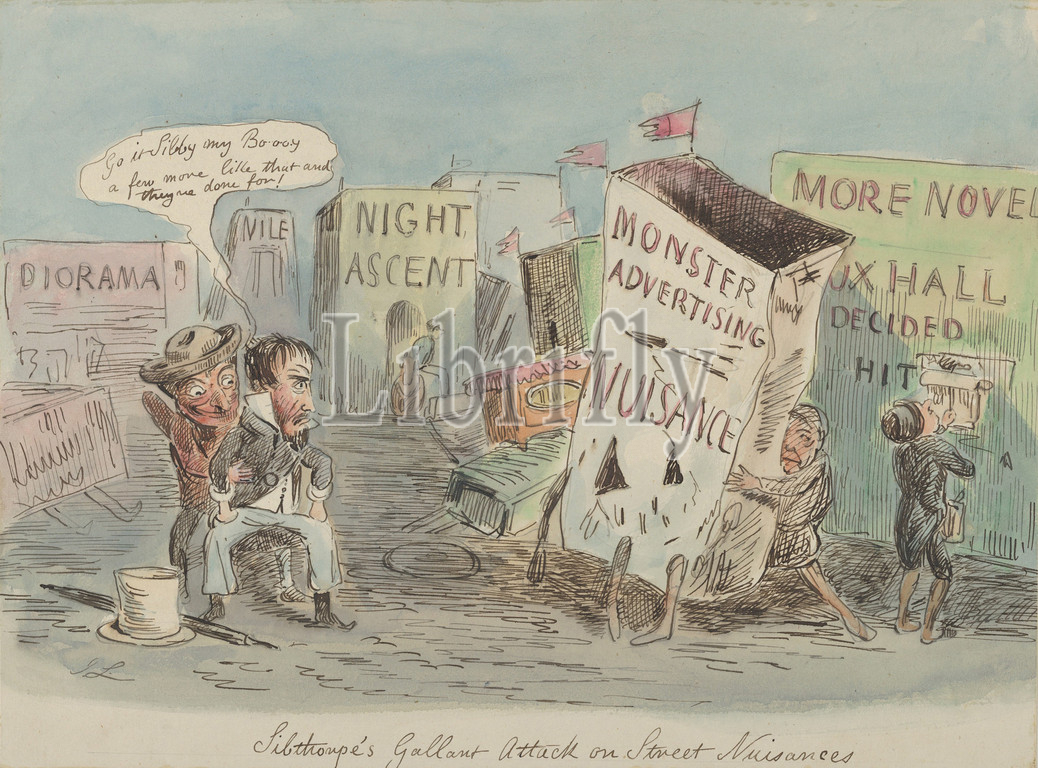 Go it Sibby my Bo-ooy
a few more like that and
they're done for!
DIORAMA
NILE
NIGHT
ASCENT
MONSTER
ADVERTISING
NUISANCE
MORE NOVEL
UX HALL
DECIDED
HIT
Librifly
JL
Sibthorpe's Gallant Attack on Street Nuisances